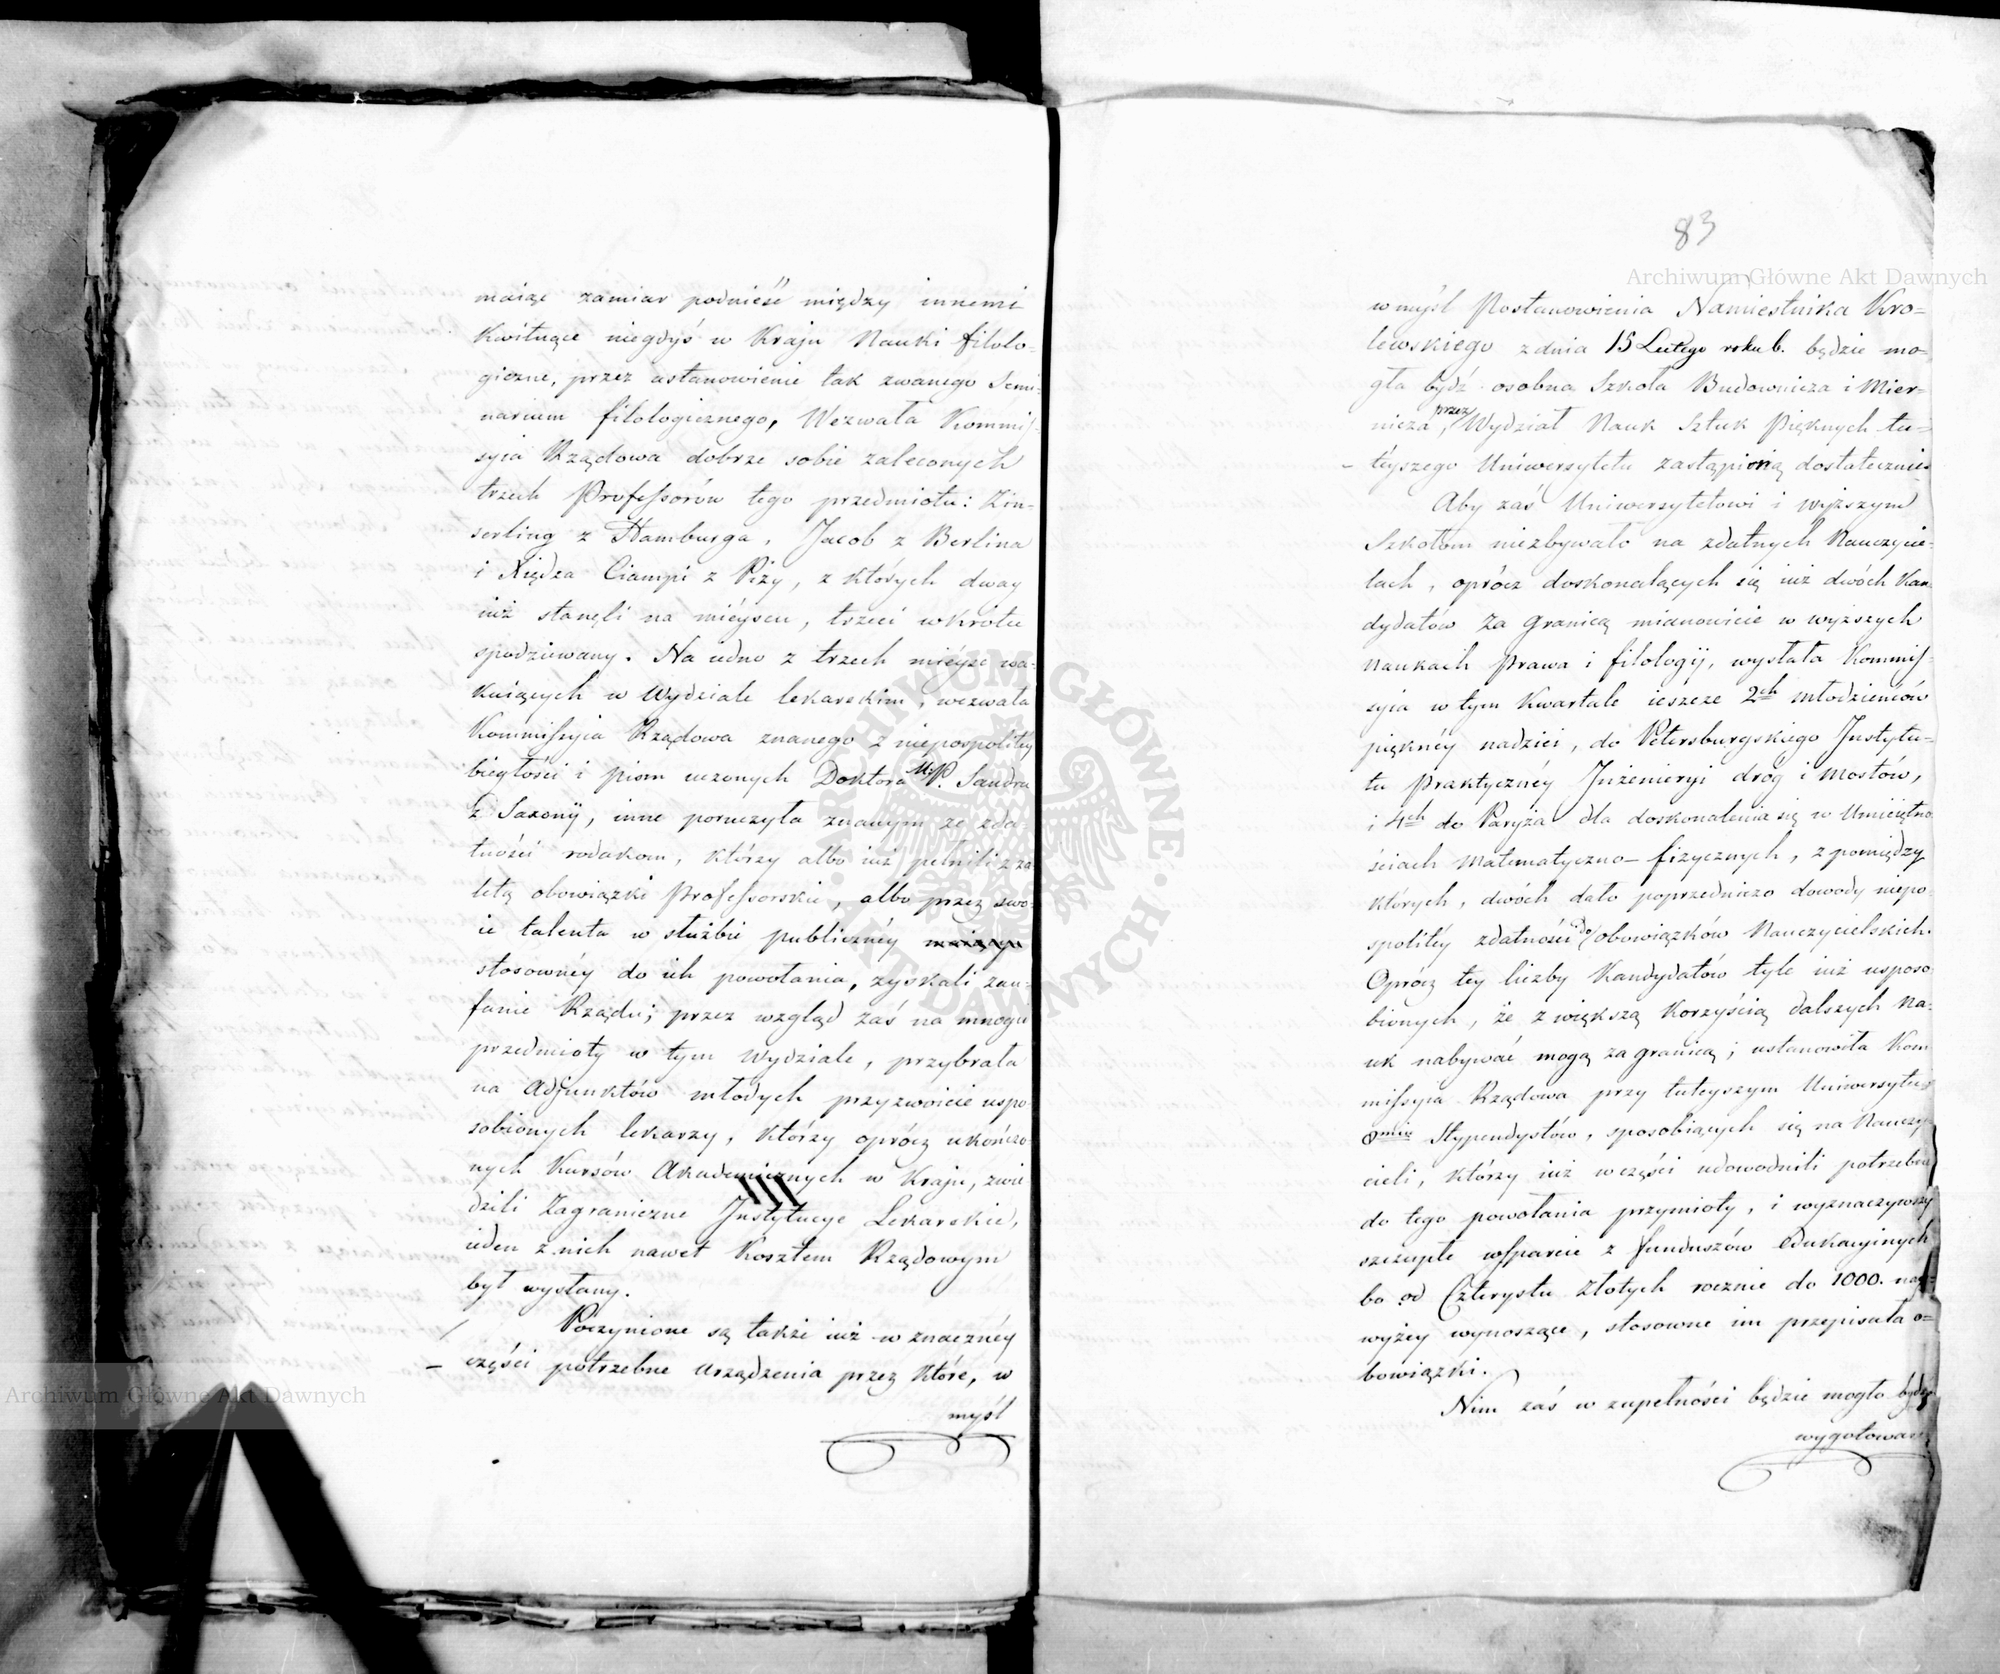 maiąc zamiar podnieść między innemi
Kwitnące niegdyś w Kraju Nauki filolo-
giczne, przez ustanowienie tak zwanego Semi-
narium filologicznego, Wezwała Kommis-
syia Rządowa dobrze sobie zaleconych
trzech Professorów tego przedmiotu: Zin-
serling z Hamburga, Jacob z Berlina
i Xiędza Ciampi z Pizy, z których dway
iuż stanęli na mieyscu, trzeci wkrótce
spodziewany. Na iedno z trzech mieysc wa-
kuiących w Wydziale lekarskim, wezwała
Kommissyia Rządowa znanego z niepospolitéy
biegłości i pism uczonych Doktora
z Saxonij, inne poruczyła znanym ze zda-
tności rodakom, którzy albo iuż pełnili z za-
letą obowiązki Professorskie, albo przez swo-
ie talenta w służbie publicznéy
stosownéy do ich powołania, zyskali zau-
fanie Rządu; przez wzgląd zaś na mnogie
przedmioty w tym Wydziale, przybrała
na Adjunktów młodych przyzwoicie uspo-
sobionych lekarzy, którzy oprócz ukończo-
nych Kursów Akademicznych w Kraju, zwie-
dzili Zagraniczne Instytucye Lekarskie,
ieden z nich nawet Kosztem Rządowym
był wysłany.
Poczynione są także iuż w znacznéy
części potrzebne urządzenia przez które, w
myśl
83
Archiwum Główne Akt Dawnych
w myśl Postanowienia Namiestnika Kro-
lewskiego z dnia 15 Lutego roku b. będzie mo-
gła bydź osobna Szkoła Budownicza i Mier-
nicza, przez Wydział Nauk Sztuk Pięknych tu-
téyszego Uniwersytetu zastąpioną dostatecznie.
Aby zaś Uniwersytetowi i wyższym
Szkołom niezbywało na zdatnych Nauczycie-
lach, oprócz doskonalących się iuż dwóch Kan-
dydatów za granicą mianowicie w wyższych
naukach Prawa i filologij, wysłała Kommis-
syia w tym Kwartale ieszcze 2ch młodzieńców
pięknéy nadziei, do Petersburgskiego Instytu-
tu Praktycznéy Inżenieryi dróg i mostów,
i 4ch do Paryża dla doskonalenia się w Umieiętno-
ściach matematyczno-fizycznych, z pomiędzy
których, dwóch dało poprzedniczo dowody niepo-
spolitéy zdatności do obowiązków Nauczycielskich.
Oprócz tey liczby Kandydatów tyle iuż usposo-
bionych, że z większą korzyścią dalszych na-
uk nabywać mogą za granicą; ustanowiła Kom-
missyia Rządowa przy tuteyszym Uniwersytecie
8miu Stypendystów, sposobiących się na Nauczy-
cieli, którzy iuż w części udowodnili potrzebne
do tego powołania przymioty, i wyznaczywszy
szczupłe wsparcie z funduszów Edukacyinych
bo od Czterystu złotych rocznie do 1000. nay-
wyżey wynoszące, stosowne im przepisała o-
bowiązki.
Nim zaś w zupełności będzie mogło bydź
wygotowan
Archiwum Główne Akt Dawnych
ARCHIWUM GŁÓWNE AKT DAWNYCH